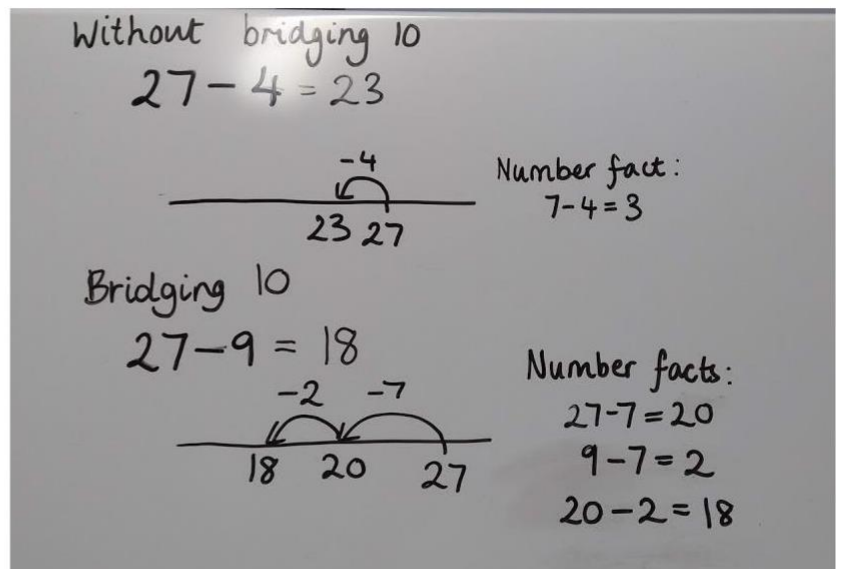 Without bridging 10
27-4=23
-4
23 27
Number fact:
7-4=3
Bridging 10
27-9= 18
-2 -7
18 20 27
Number facts:
27-7=20
9-7=2
20-2=18